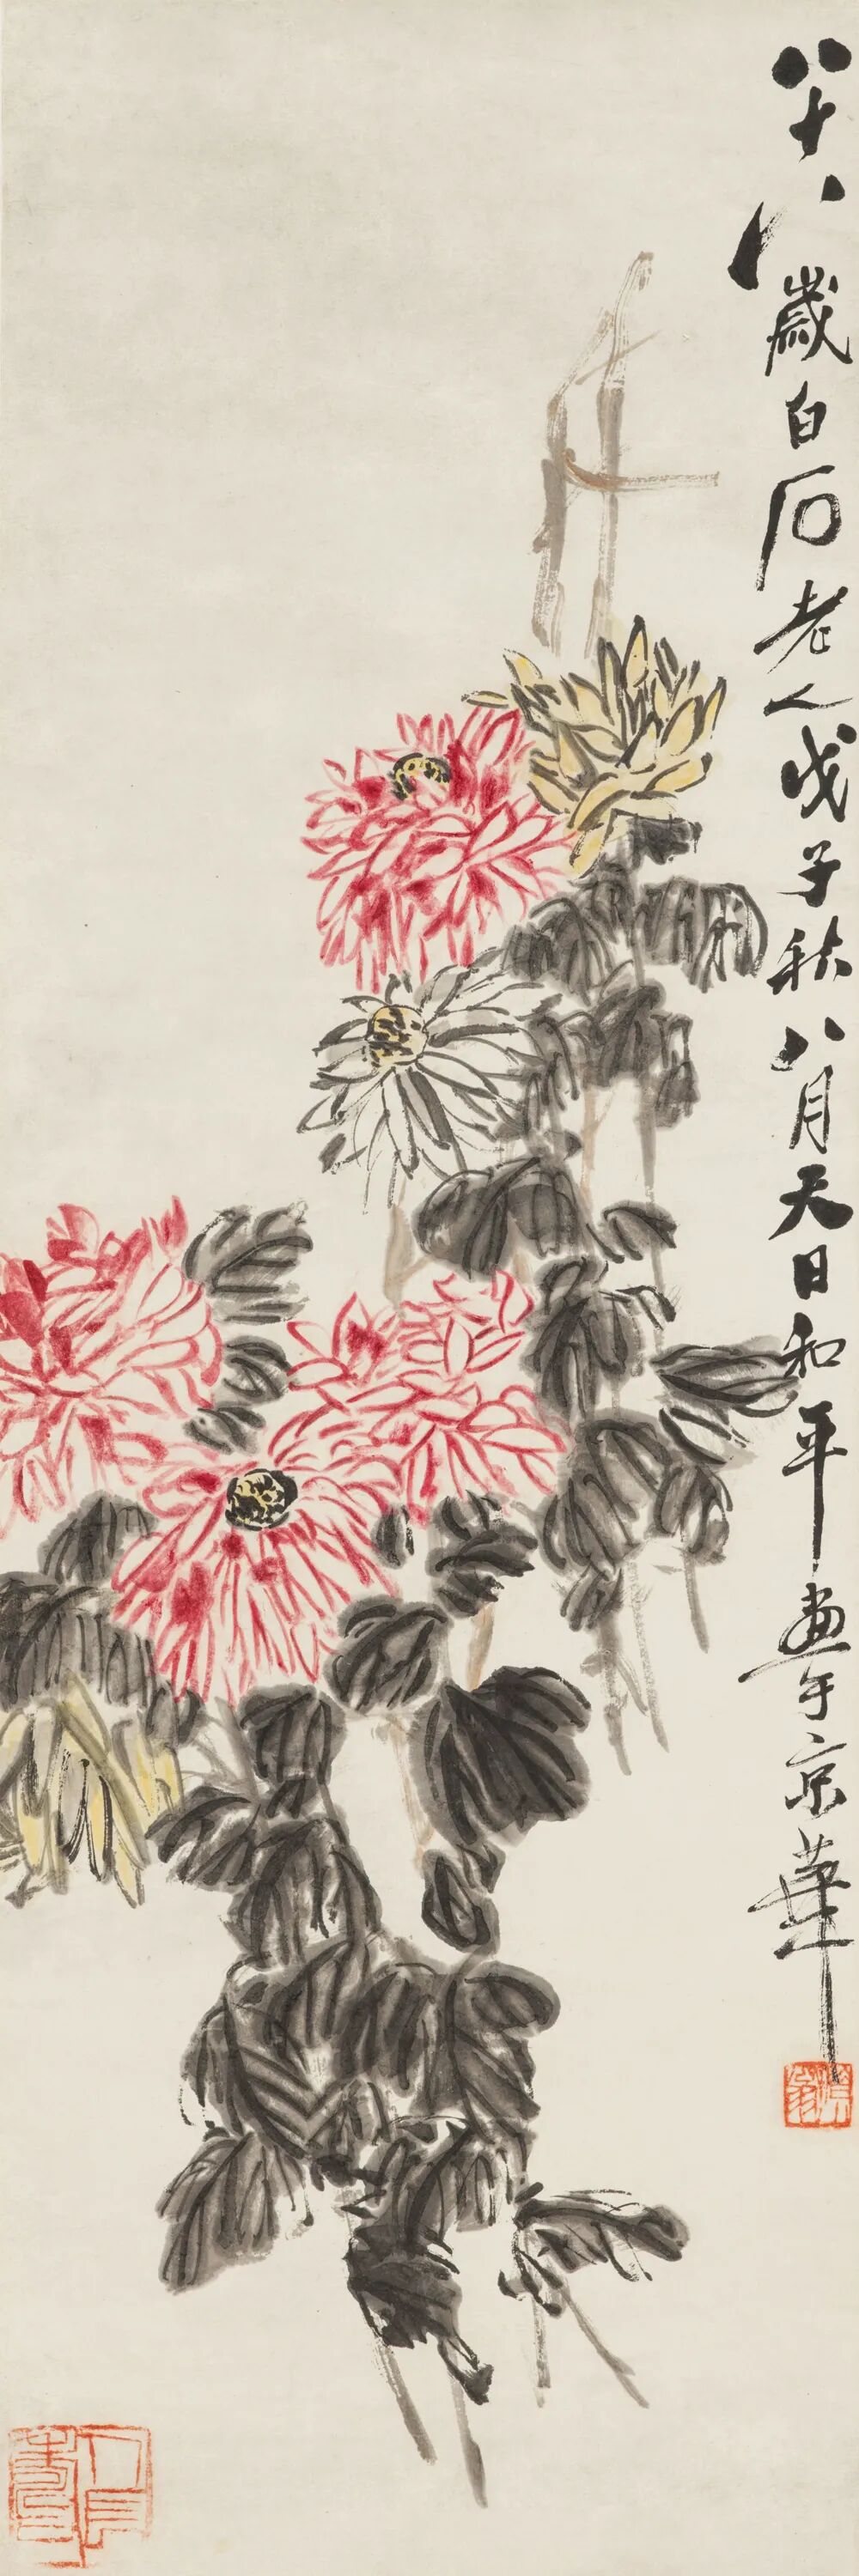 八十八歲白石老人戊子秋八月天日和平畫于京華